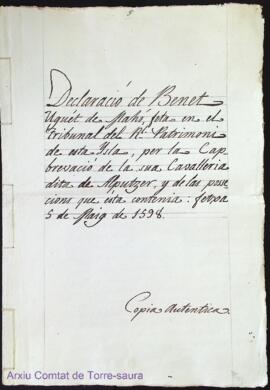 Declaració de Benet
Uguét de Mahó, feta en el
tribunal del Rl. Patrimoni
de esta Ysla, per la Cap
brevació de la sua Cavalleria
dita de Alputzer, y de las posse
cions que esta contenia: fetxa
5 de Maig de 1598.
Copia autentica
Arxiu Comtat de Torre-saura